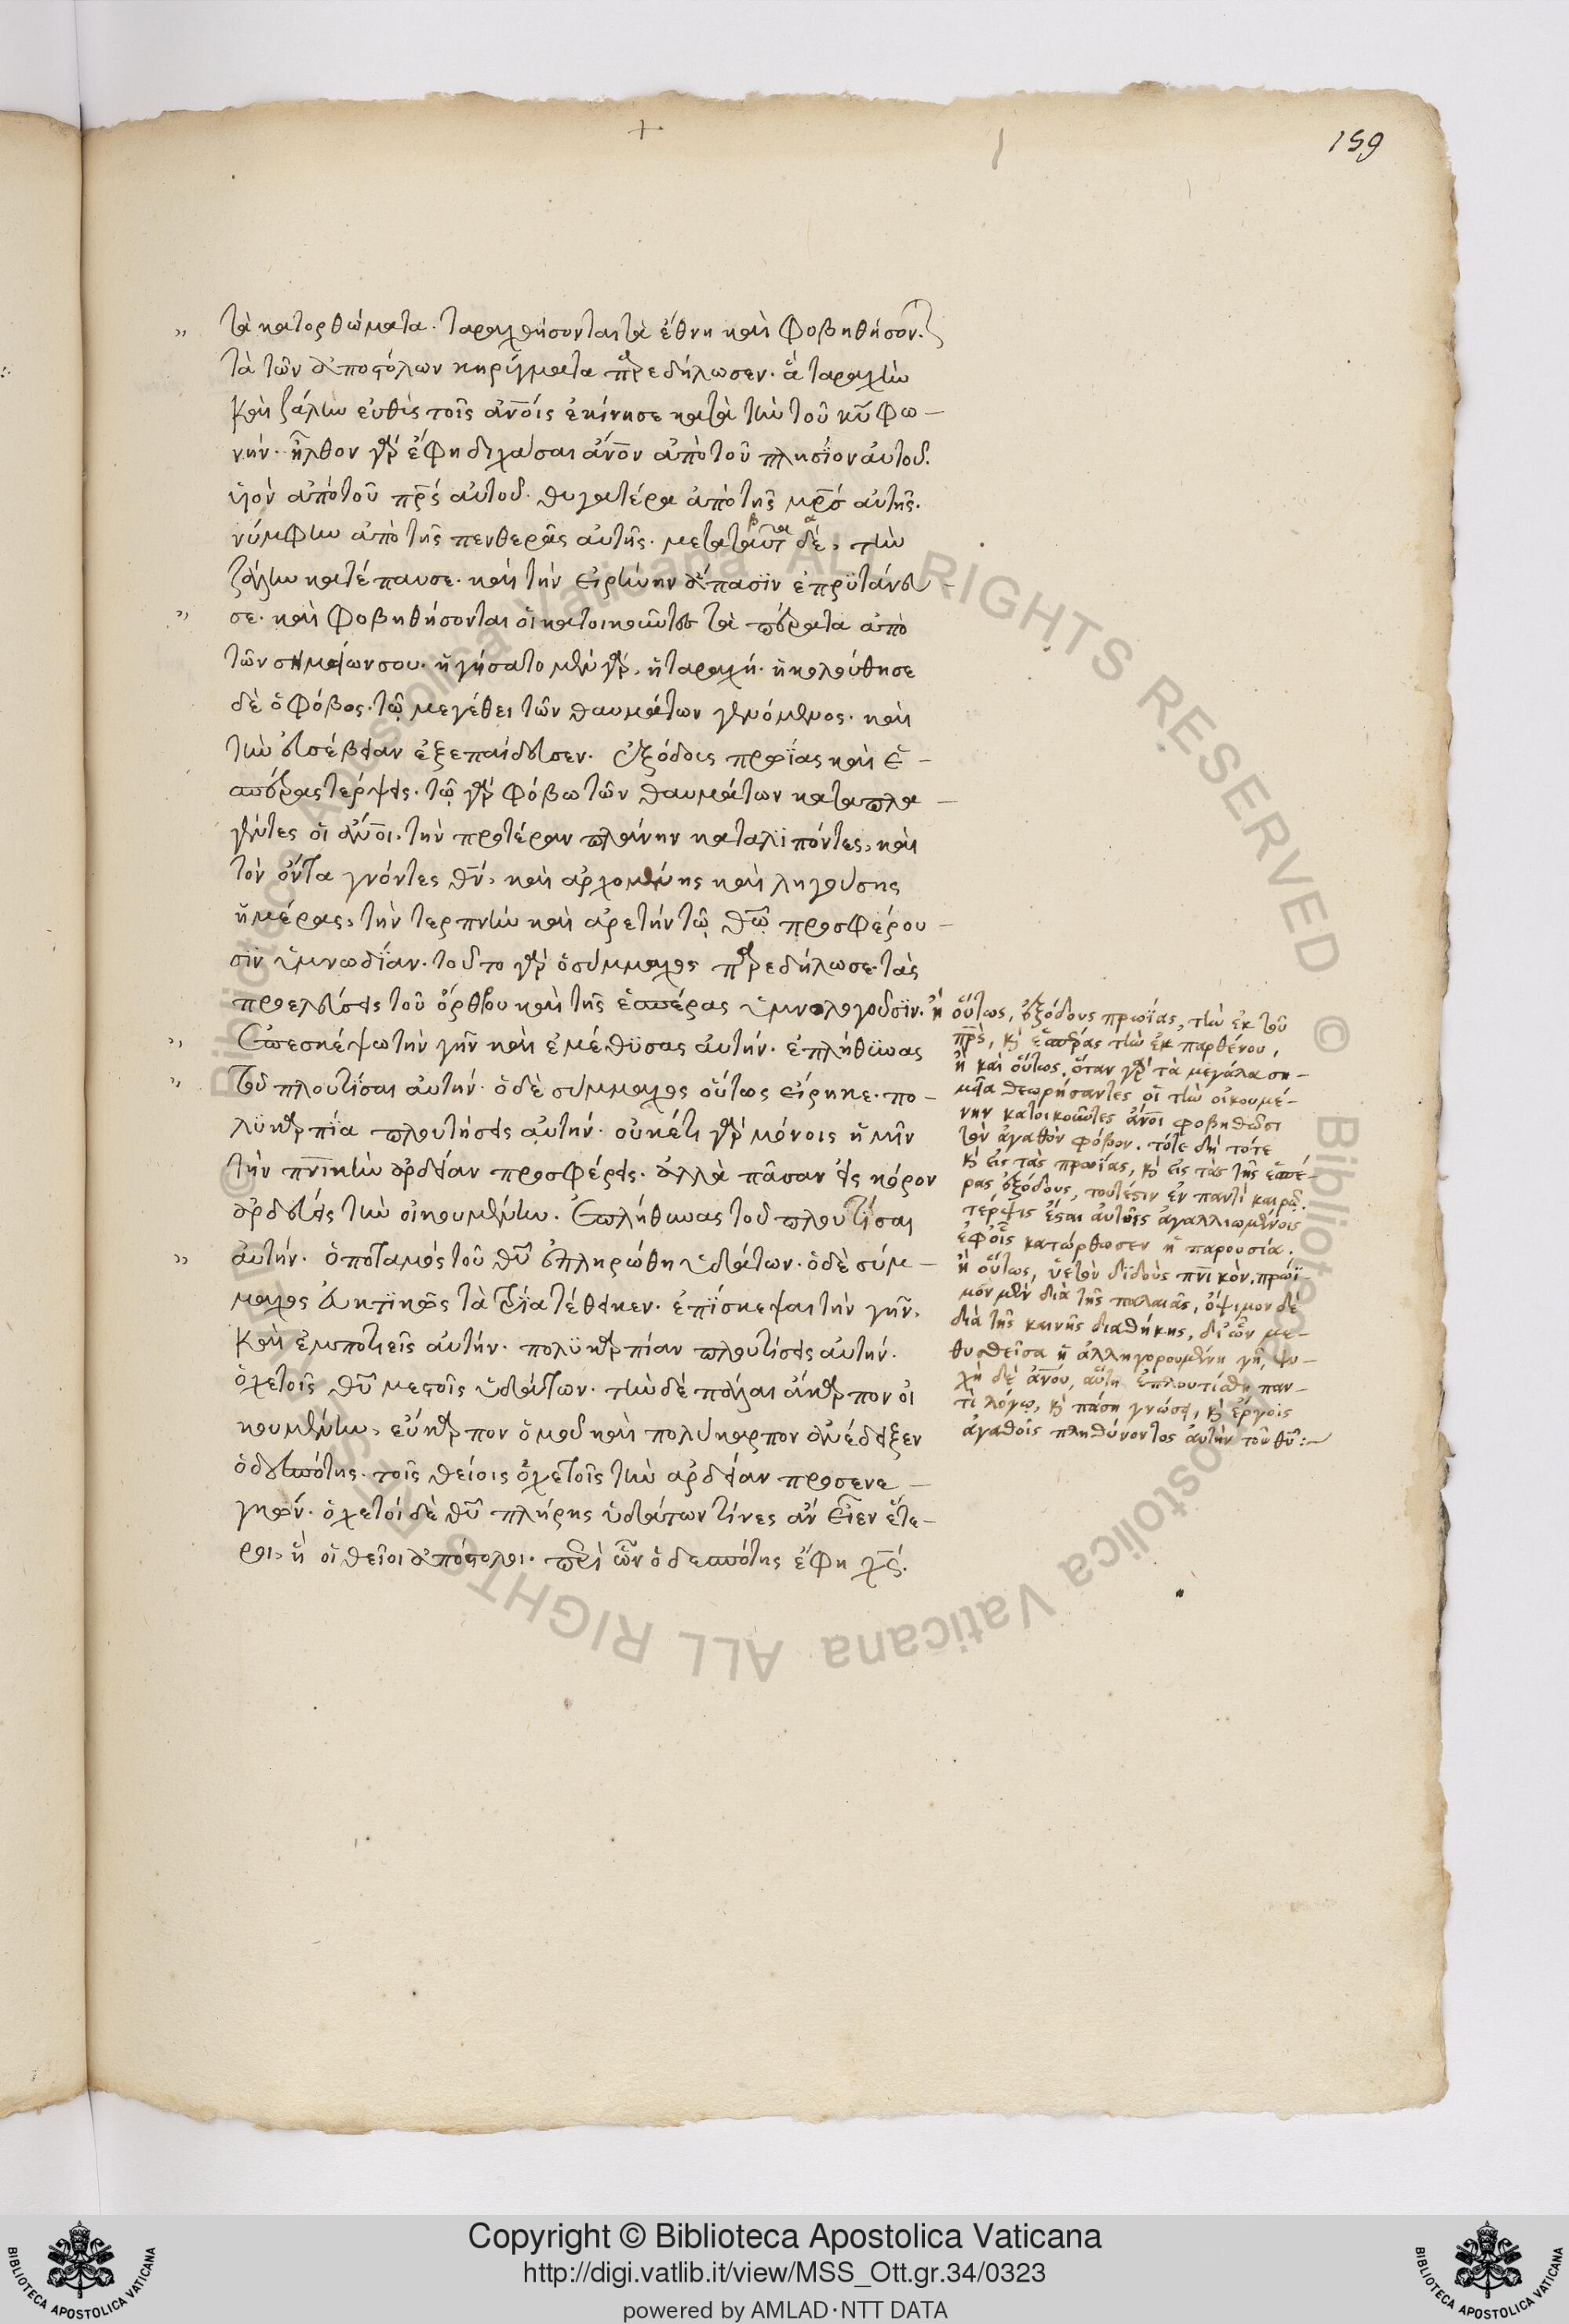 159
τὰ κατορθώματα. ταραχθήσονται τὰ ἔθνη καὶ φοβηθήσοντ
τὰ τῶν ἀποστόλων κηρύγματα προεδήλωσεν. ἃ ταραχὴν
καὶ ζάλην εὐθὺς τοῖς ἀνοις ἐκίνησε κατὰ τὴν τοῦ κυ φω-
νήν. ἦλθον γὰρ ἔφη διχάσαι ἄνον ἀπὸ τοῦ πλησίον αὐτοῦ.
υἱὸν ἀπὸ τοῦ πρς αὐτοῦ. θυγατέρα ἀπὸ τῆς μρσ αὐτῆς.
νύμφην ἀπὸ τῆς πενθερᾶς αὐτῆς. μετὰ ταῦτα δὲ, τὴν
ζάλην κατέπαυσε. καὶ τὴν εἰρήνην ἅπασϊν ἐπρϋτάνευ-
σε. καὶ φοβηθήσονται οἱ κατοικοῦντες τὰ πέρατα ἀπὸ
τῶν σημείων σου. ἡγήσατο μὲν γὰρ, ἡ ταραχή. ἠκολούθησε
δὲ ὁ φόβος. τῷ μεγέθει τῶν θαυμάτων γενόμενος. καὶ
τὴν εὐσέβειαν ἐξεπαίδευσεν. ἐξόδους πρωΐας καὶ ἑ-
σπέρας τέρψεις. τῷ γὰρ φόβω τῶν θαυμάτων καταπλα-
γέντες οἱ ἄνοι. τὴν προτέραν πλάνην καταλϊπόντες, καὶ
τὸν ὄντα γνόντες θν, καὶ ἀρχομένης καὶ ληγούσης
ἡμέρας, τὴν τερπνὴν καὶ ἀρετὴν τῷ θω προσφέρου-
σϊν ὑμνωδΐαν. τοῦτο γὰρ ὁ σύμμαχος προεδήλωσε. τὰς
προελεύσεις τοῦ ὄρθρου καὶ τῆς ἑσπέρας ὑμνολογοῦσϊν.
Ἐπεσκέψω τὴν γῆν καὶ ἐμέθϋσας αὐτήν. ἐπλήθϋνας
τοῦ πλουτΐσαι αὐτήν. ὁ δὲ σύμμαχος οὕτως εἴρηκε. πο-
λϋκαρπία πλουτήσεις αὐτήν. οὐκέτι γὰρ μόνοις ἡμῖν
τὴν πνικὴν ἀρδείαν προσφέρεις. ἀλλὰ πᾶσαν εἰς κόρον
ἀρδεύεις τὴν οἰκουμένην. Ἐπλήθυνας τοῦ πλουτίσαι
αὐτήν. ὁ ποταμὸς τοῦ θυ ἐπληρώθη ὑδάτων. ὁ δὲ σύμ-
μαχος τὰ τέθεικεν. ἐπΐσκεψαι τὴν γῆν,
καὶ ἐμποτιεῖς αὐτήν. πολϋκαρπίαν πλουτίσεις αὐτήν.
ὀχετοῖς θυ μεστοῖς ὑδάτων. τὴν δὲ πάλαι ἄκαρπον οἰ
κουμένην, εὔκαρπον ὁμοῦ καὶ πολύκαρπον ἀνέδειξεν
ὁ δεσπότης. τοῖς θείοις ὀχετοῖς τὴν ἀρδείαν προσενε-
γκών. ὀχετοὶ δὲ θυ πλήρης ὑδάτων τίνες ἂν εἶεν ἕτε-
ροι, ἢ οἱ θεῖοι ἀπόστολοι. περὶ ὧν ὁ δεσπότης ἔφη χς.
ἢ οὕτως, ἐξόδους πρωΐας, τὴν ἐκ τοῦ
πρς, κ ἑσπέρας τὴν ἐκ παρθένου,
ἢ καὶ οὕτως. ὅταν γὰρ τὰ μεγάλα ση-
μεῖα θεωρήσαντες οἱ τὴν οἰκουμέ-
νην κατοικοῦντες ἄνοι φοβηθῶσι
τὸν ἀγαθὸν φόβον. τότε δὴ τότε
κ εἰς τὰς πρωΐας, κ εἰς τὰς τῆς ἑσπέ-
ρας ἐξόδους, τουτέστιν ἐν παντὶ καιρῷ.
τέρψις ἔσται αὐτοῖς ἀγαλλιωμένοις
ἐφοῖς κατώρθωσεν ἡ παρουσία.
ἢ οὕτως, ὑετὸν δϊδοὺς πνικὸν. πρώϊ-
μον μὲν διὰ τῆς παλαιᾶς, ὄψιμον δὲ
διὰ τῆς καινῆς διαθήκης, δι' ὧν με-
θυσθεῖσα ἡ ἀλληγορουμένη γῆ, ψυ-
χὴ δὲ ἀνου, αὕτη ἐπλουτίσθη παν-
τὶ λόγῳ, κ πάση γνώσει, κ ἔργοις
ἀγαθοῖς πληθύνοντος αὐτὴν τοῦ θυ:-
Copyright © Biblioteca Apostolica Vaticana
http://digi.vatlib.it/view/MSS_Ott.gr.34/0323
powered by AMLAD·NTT DATA
BIBLIOTECA APOSTOLICA VATICANA
BIBLIOTECA APOSTOLICA VATICANA
© Biblioteca Apostolica Vaticana ALL RIGHTS RESERVED
© Biblioteca Apostolica Vaticana ALL RIGHTS RESERVED